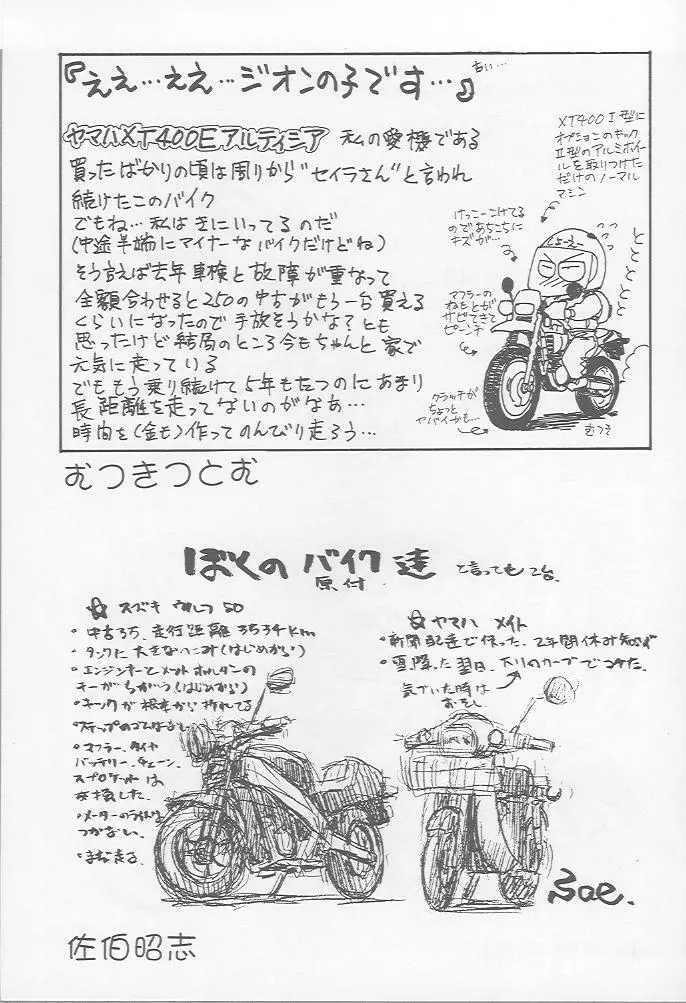 『ええ…ええ…ジオンの子です…』
古い…
ヤマハXT400Eアルティシア 私の愛機である
買ったばかりの頃は周りから"セイラさん"と言われ
続けたこのバイク
でもね…私はきにいってるのだ
(中途半端にマイナーなバイクだけどね)
そう言えば去年車検と故障が重なって
全額合わせると250の中古がもう一台買える
くらいになったので手放そうかな?とも
思ったけど結局のところ今もちゃんと家で
元気に走っている
でももう乗り続けて5年もたつのにあまり
長距離を走ってないのがなあ…
時間を(金も)作ってのんびり走ろう…
XT400Ⅰ型に
オプションのキック
Ⅱ型のアルミホイー
ルを取りつけた
だけのノーマル
マシン
けっこーコけてる
のであちこちに
キズが…
マフラーの
ねもとが
サビてきて
ピーンチ
クラッチが
ちょっと
ヤバイかも…
しょーえー
トトトトトト
むつき
むつきつとむ
ぼくの バイク 達 と言っても2台.
原付
☆ スズキ ウルフ 50
・中古35、走行距離3534km
・タンクに大きなへこみ(はじめから)
・エンジンキーとメットホルダーの
キーがちがう(はじめから)
・キックが根元から折れてる
・ステップのゴムはなし
・マフラー、タイヤ
バッテリー、チェーン、
スプロケットは
交換した.
・メーターのライトは
つかない.
・まだ走る.
☆ ヤマハ メイト
・新聞配達で使った、2年間休み知らず
・雪降った翌日、下りのカーブでコケた.
気づいた時は
おそし.
Sae.
佐伯昭志